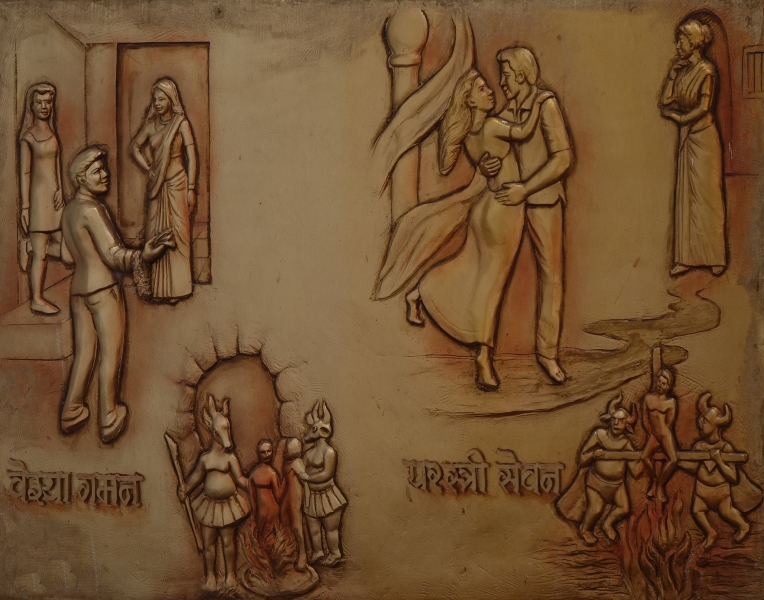 वेश्या गमन
परस्त्री सेवन